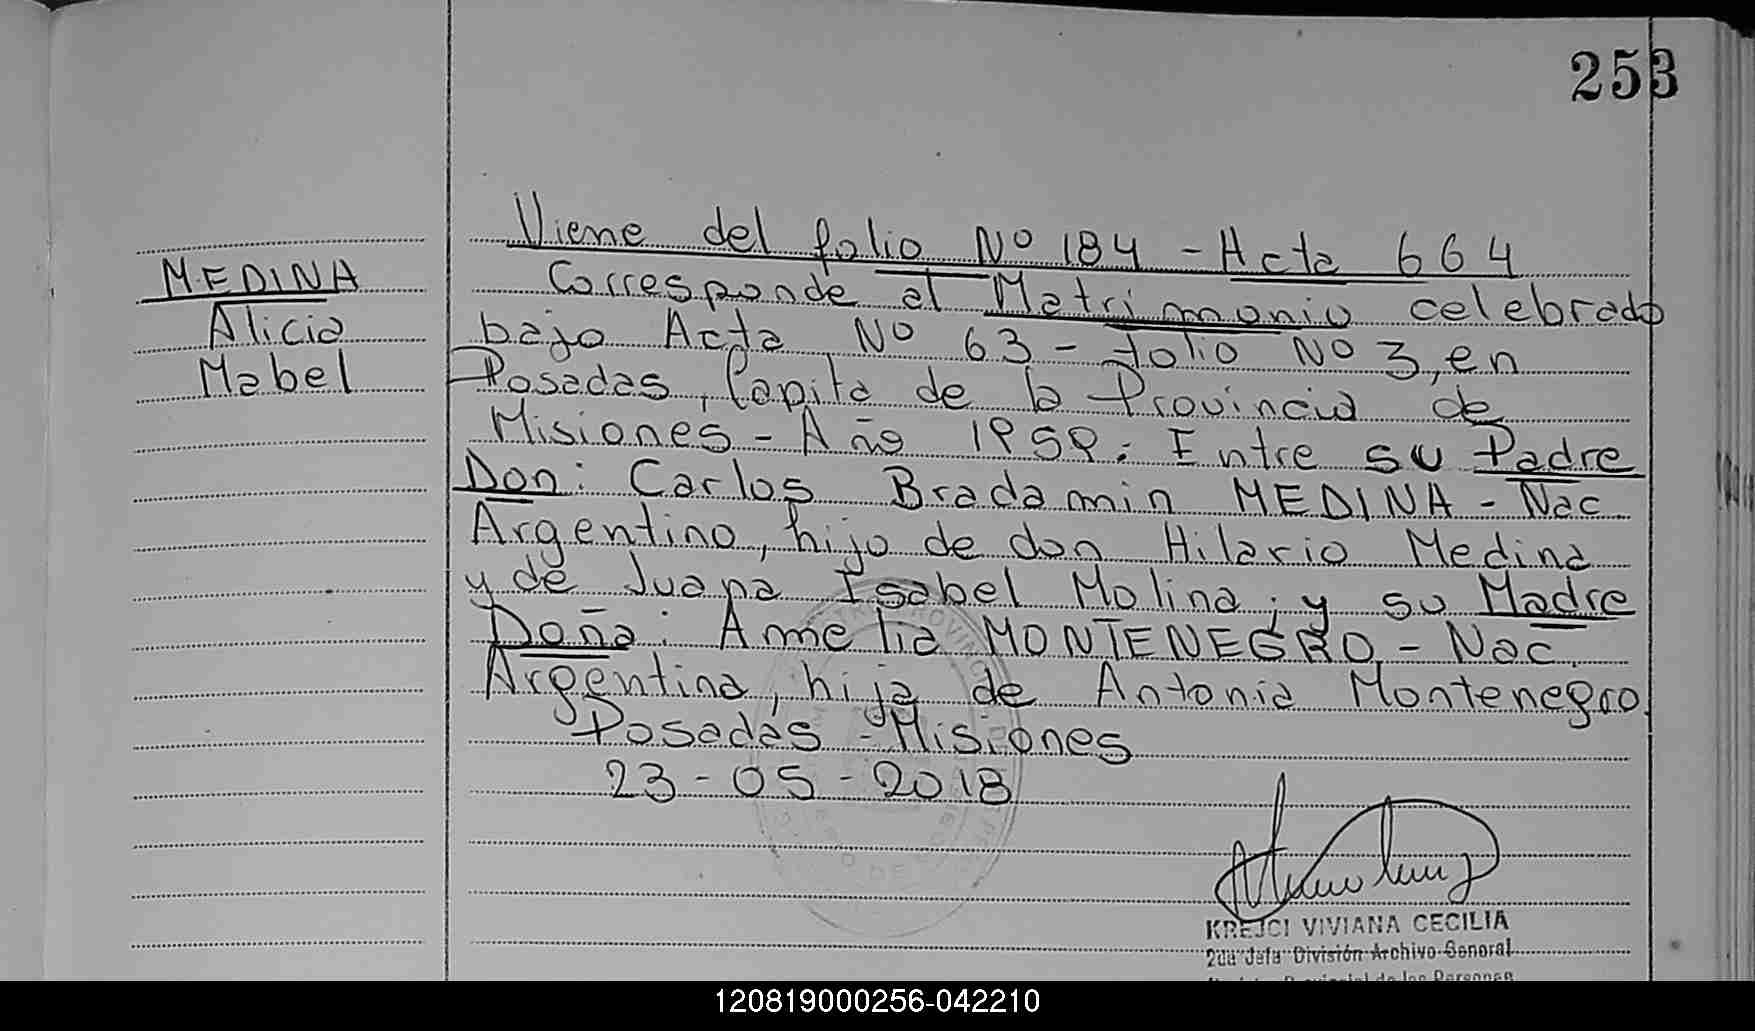 253
Viene del folio Nº 184 - Acta 664
MEDINA
Alicia
Mabel
Corresponde al Matrimonio celebrado
bajo Acta Nº 63 - folio Nº 3, en
Posadas, Capita de la Provincia de
Misiones - Año 1959: Entre su Padre
Don: Carlos Bradamin MEDINA - Nac
Argentino, hijo de don Hilario Medina
y de Juana Isabel Molina; y su Madre
Doña: Amelia MONTENEGRO - Nac.
Argentina, hija de Antonia Montenegro.
Posadas - Misiones
23-05-2018
KREJCI VIVIANA CECILIA
2da Jefa División Archivo General
Provincial de las Personas
120819000256-042210